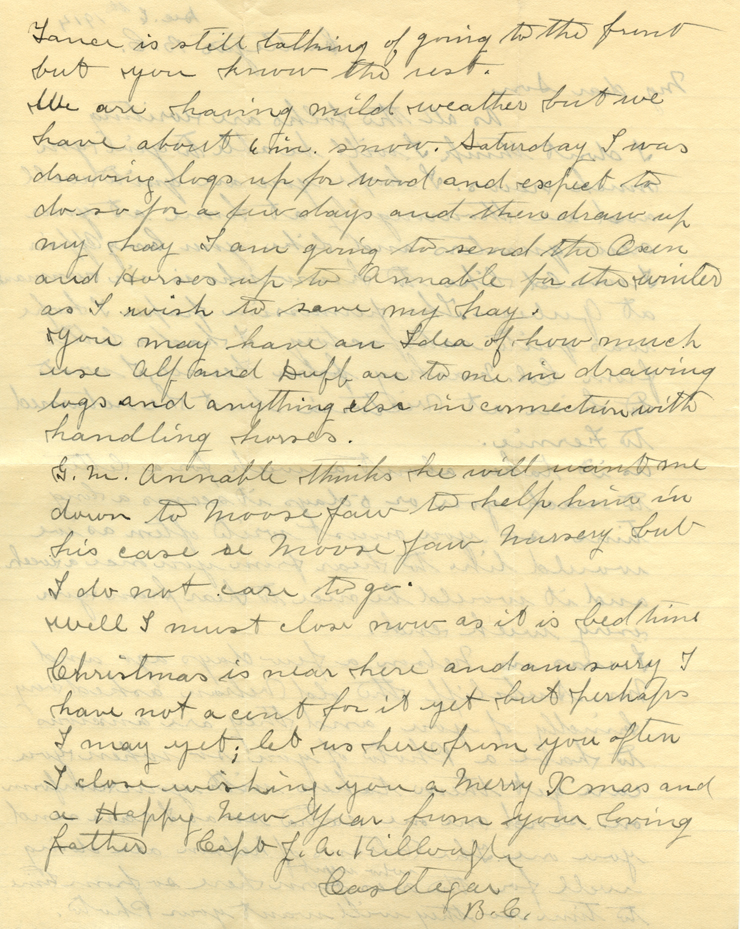 Lance is still talking of going to the front
but you know the rest.
We are having mild weather but we
have about 6 in. snow. Saturday I was
drawing logs up for word and expect to
do so for a few days and then draw up
my hay I am going to send the Oxen
and Horses up to Annable for the winter
as I wish to save my hay.
You may have an Idea of how much
use Alf and Duff are to me in drawing
logs and anything else in connection with
handling horses.
G. M. Annable thinks he will want me
down to Moose Jaw to help him in
his case re Moose Jaw Nursery but
I do not care to go.
Well I must close now as it is bed time
Christmas is near here and am sorry I
have not a cent for it yet but perhaps
I may yet; let us here from you often
I close wishing you a Merry Xmas and
a Happy New Year from your loving
father Capt J. A. Killough
Castlegar
B.C.